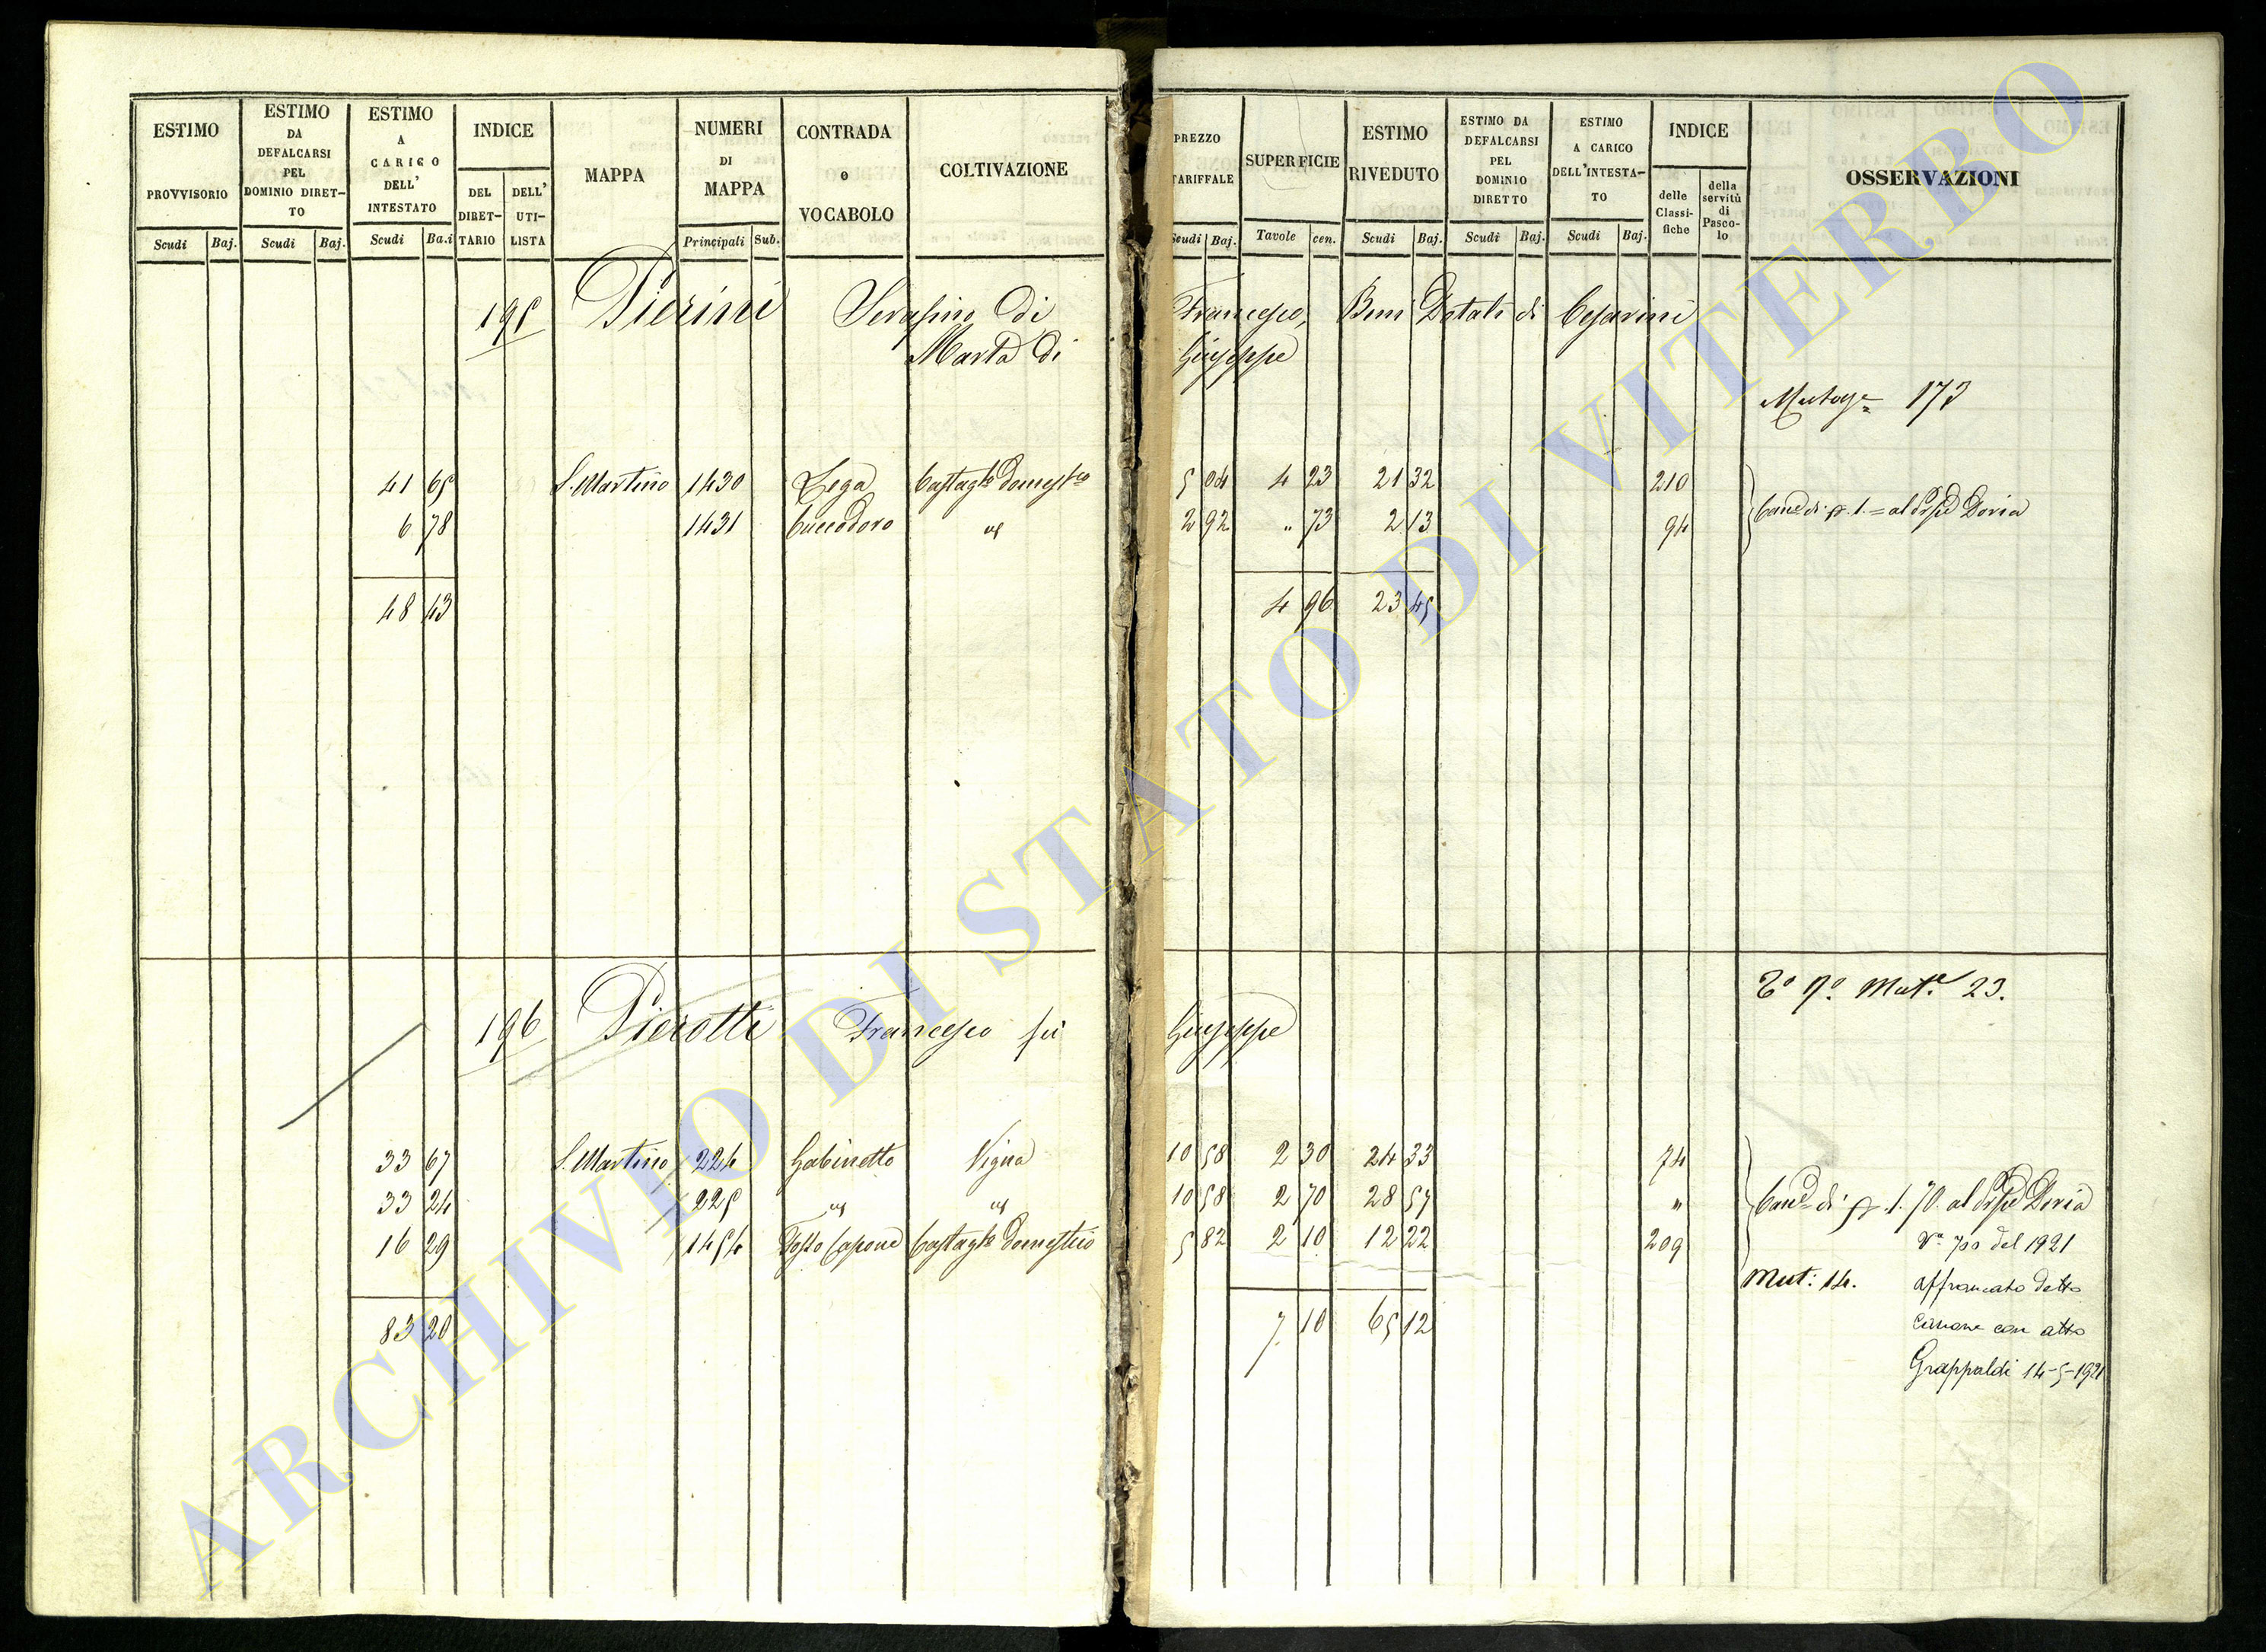 ESTIMO PROVVISORIO Scudi Baj.
ESTIMO DA DEFALCARSI PEL DOMINIO DIRET-TO Scudi Baj.
ESTIMO A CARICO DELL' INTESTATO Scudi Ba.i
INDICE DEL DIRET-TARIO DELL' UTI-LISTA
MAPPA
NUMERI DI MAPPA Principali Sub.
CONTRADA o VOCABOLO
COLTIVAZIONE
PREZZO TARIFFALE Scudi Baj.
SUPERFICIE Tavole cen.
ESTIMO RIVEDUTO Scudi Baj.
ESTIMO DA DEFALCARSI PEL DOMINIO DIRETTO Scudi Baj.
ESTIMO A CARICO DELL'INTESTA-TO Scudi Baj.
INDICE delle Classi-fiche della servitù di Pasco-lo
OSSERVAZIONI
195 Pierini Serafino di Francesco, Beni Dotali di Cesarini
Marta di Giuseppe
173
41 65 S. Martino 1430 Lega Castagto domestco 5 04 4 23 21 32 210
6 78 1431 Cuccodoro " 2 92 " 73 2 13 94
Cane di 1. = al Doria
48 43 4 96 23 45
Mute 23.
196 Pierotti Francesco fu Giuseppe
33 67 S. Martino 224 Gabinetto Vigna 10 58 2 30 24 33 74
33 24 225 " " 10 58 2 70 28 57 "
Cane di 1.70. al Doria
16 29 1454 Fosso Capone Castagto domestico 5 82 2 10 12 22 209
del 1921
Mut: 14. affrancato detto
canone con atto
83 20 7 10 65 12
Grappaldi 14-5-1921
ARCHIVIO DI STATO DI VITERBO